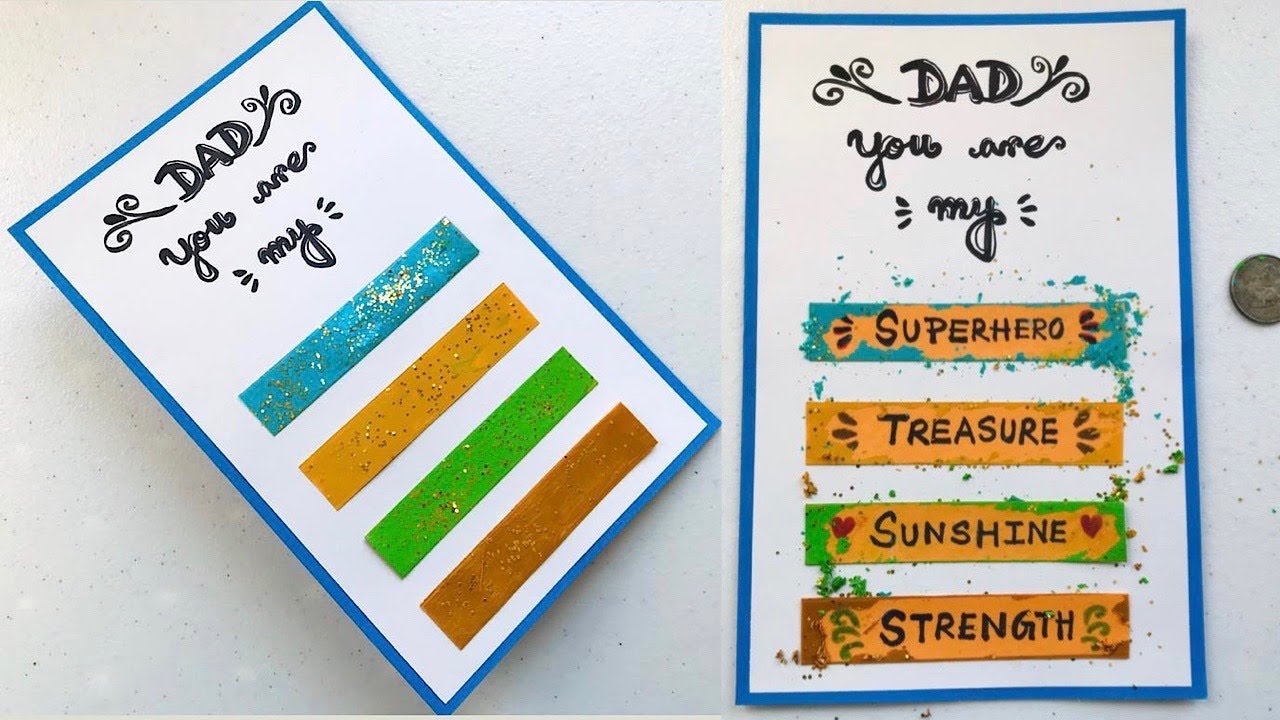 DAD
you are
my
DAD
you are
my
SUPERHERO
TREASURE
SUNSHINE
STRENGTH